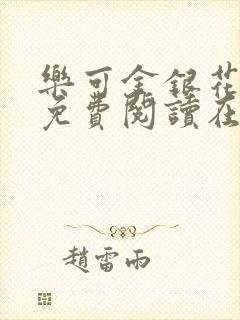 樂可金銀花
免費閱讀在
趙雷雨